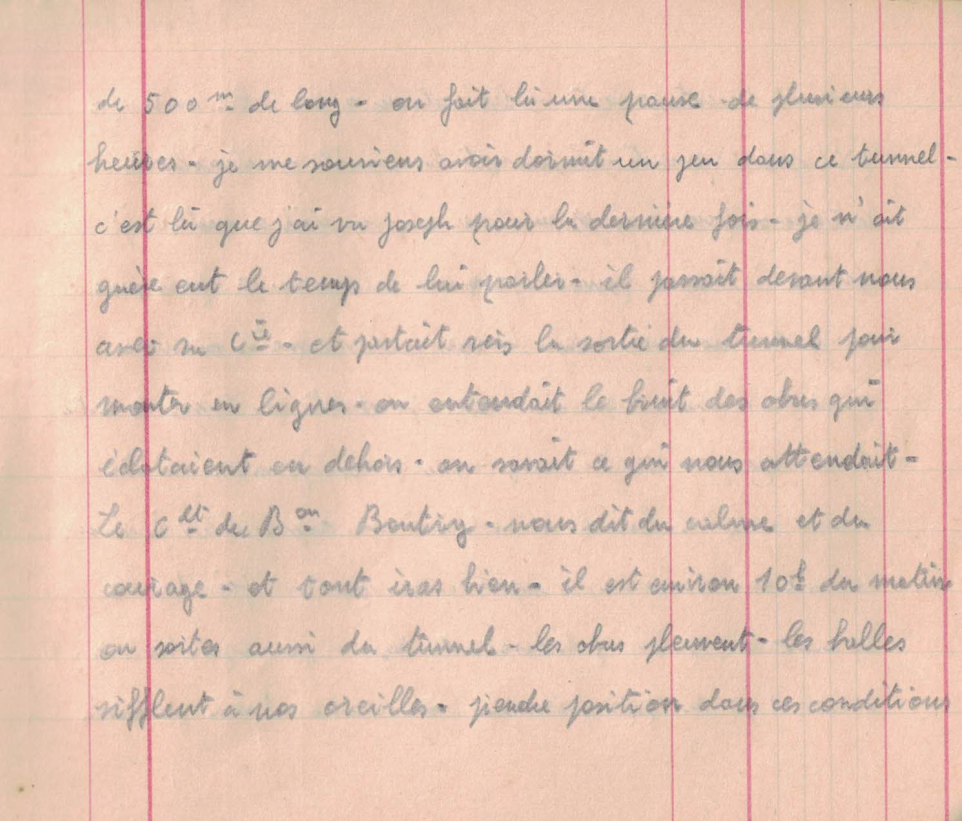 de 500 m de long - on fait là une pause de plusieurs
heures - je me souviens avoir dormit un peu dans ce tunnel -
c'est là que j'ai vu joseph pour la dernière fois - je n'ait
guère eut le temps de lui parler - il passait devant nous
avec sa Cie - et partait vers la sortie du tunnel pour
monter en lignes - on entendait le bruit des obus qui
éclataient en dehors - on savait ce qui nous attendait -
Le Cdt du Bon Boutiry - nous dit du calme et du
courage - et tout iras bien - il est environ 10h du matin
on sortes aussi du tunnel - les obus pleuvent - les balles
sifflent à nos oreilles - prendre position dans ces conditions